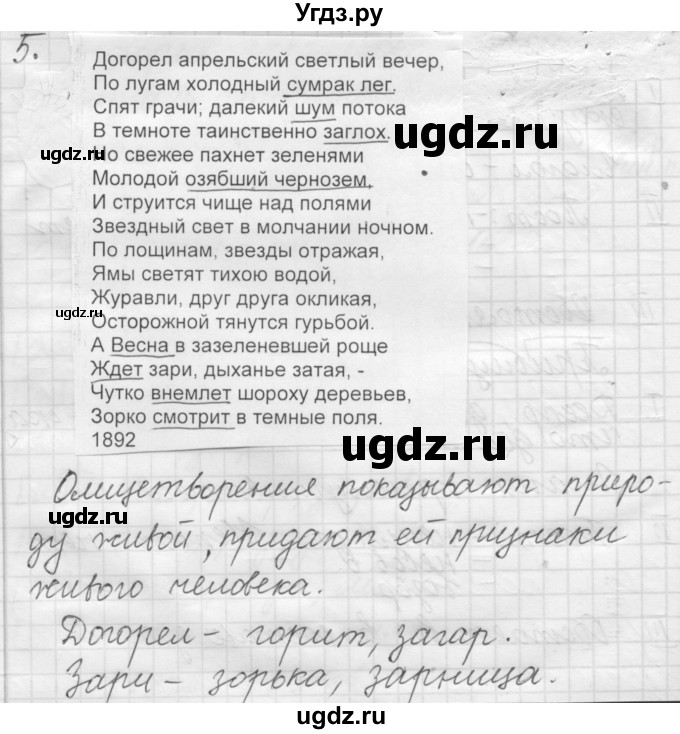 Угдз.ру
5.
Догорел апрельский светлый вечер,
По лугам холодный сумрак лег.
Спят грачи; далекий шум потока
В темноте таинственно заглох.
ugdz.ru
Но свежее пахнет зеленями
Молодой озябший чернозем,
И струится чище над полями
Звездный свет в молчании ночном.
По лощинам, звезды отражая,
Ямы светят тихою водой,
Журавли, друг друга окликая,
ugdz.ru
Осторожной тянутся гурьбой.
А Весна в зазеленевшей роще
ugdz.ru
Ждет зари, дыханье затая, -
Чутко внемлет шороху деревьев,
Зорко смотрит в темные поля.
1892
Олицетворения показывают приро-
ugdz.ru
ду живой, придают ей признаки
ugdz.ru
живого человека.
Догорел – горит, загар.
Зари – зорька, зарница.
ugdz.ru